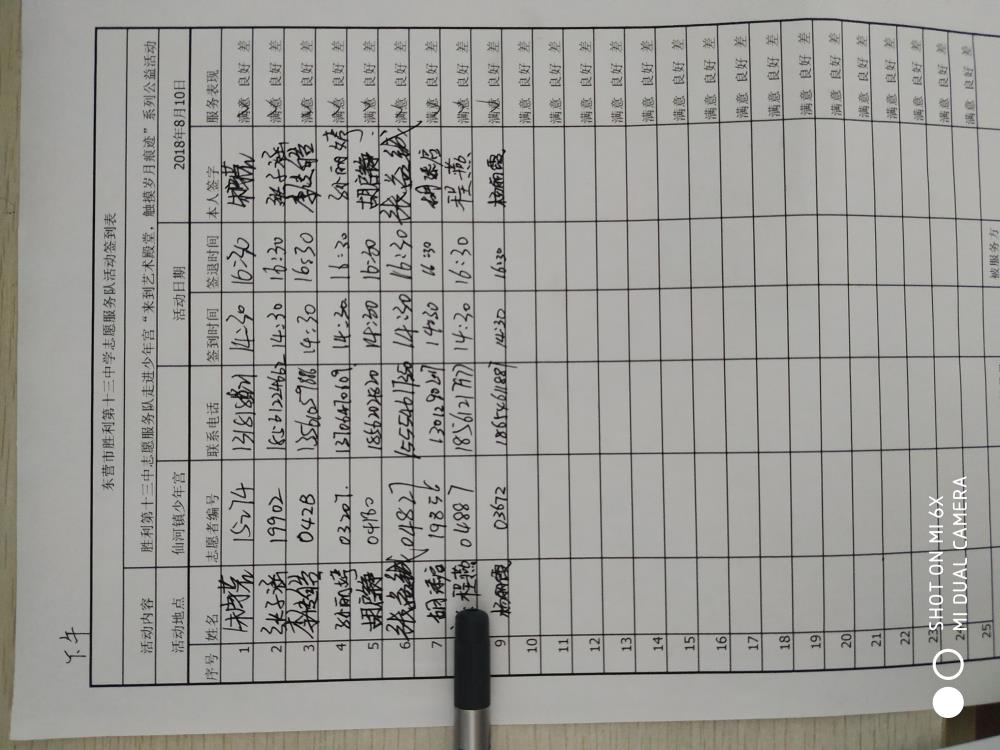 下午
东营市胜利第十三中学志愿服务队活动签到表
活动内容 胜利第十三中志愿服务队走进少年宫“来到艺术殿堂，触摸岁月痕迹”系列公益活动
活动地点 仙河镇少年宫 活动日期 2018年8月10日
序号 姓名 志愿者编号 联系电话 签到时间 签退时间 本人签字 服务表现
1 15274 14:30 16:30 满意 良好 差
2 张子涵 19902 18561224662 14:30 16:30 张子涵 满意 良好 差
3 14:30 16:30 满意 良好 差
4 孙丽婷 03207 13706470609 14:30 16:30 孙丽婷 满意 良好 差
5 胡启静 14:30 16:30 胡启静 满意 良好 差
6 张益铖 04827 14:30 16:30 张益铖 满意 良好 差
7 19856 14:30 16:30 满意 良好 差
程燕 04887 18561217977 14:30 16:30 程燕 满意 良好 差
9 杨丽霞 03672 18654661887 14:30 16:30 杨丽霞 满意 良好 差
10 满意 良好 差
11 满意 良好 差
12 满意 良好 差
13 满意 良好 差
14 满意 良好 差
15 满意 良好 差
16 满意 良好 差
17 满意 良好 差
18 满意 良好 差
19 满意 良好 差
20 满意 良好 差
21 满意 良好 差
22 满意 良好 差
23 满意 良好 差
满意 良好 差
25 满意 良好 差
被服务方
SHOT ON MI 6X
MI DUAL CAMERA